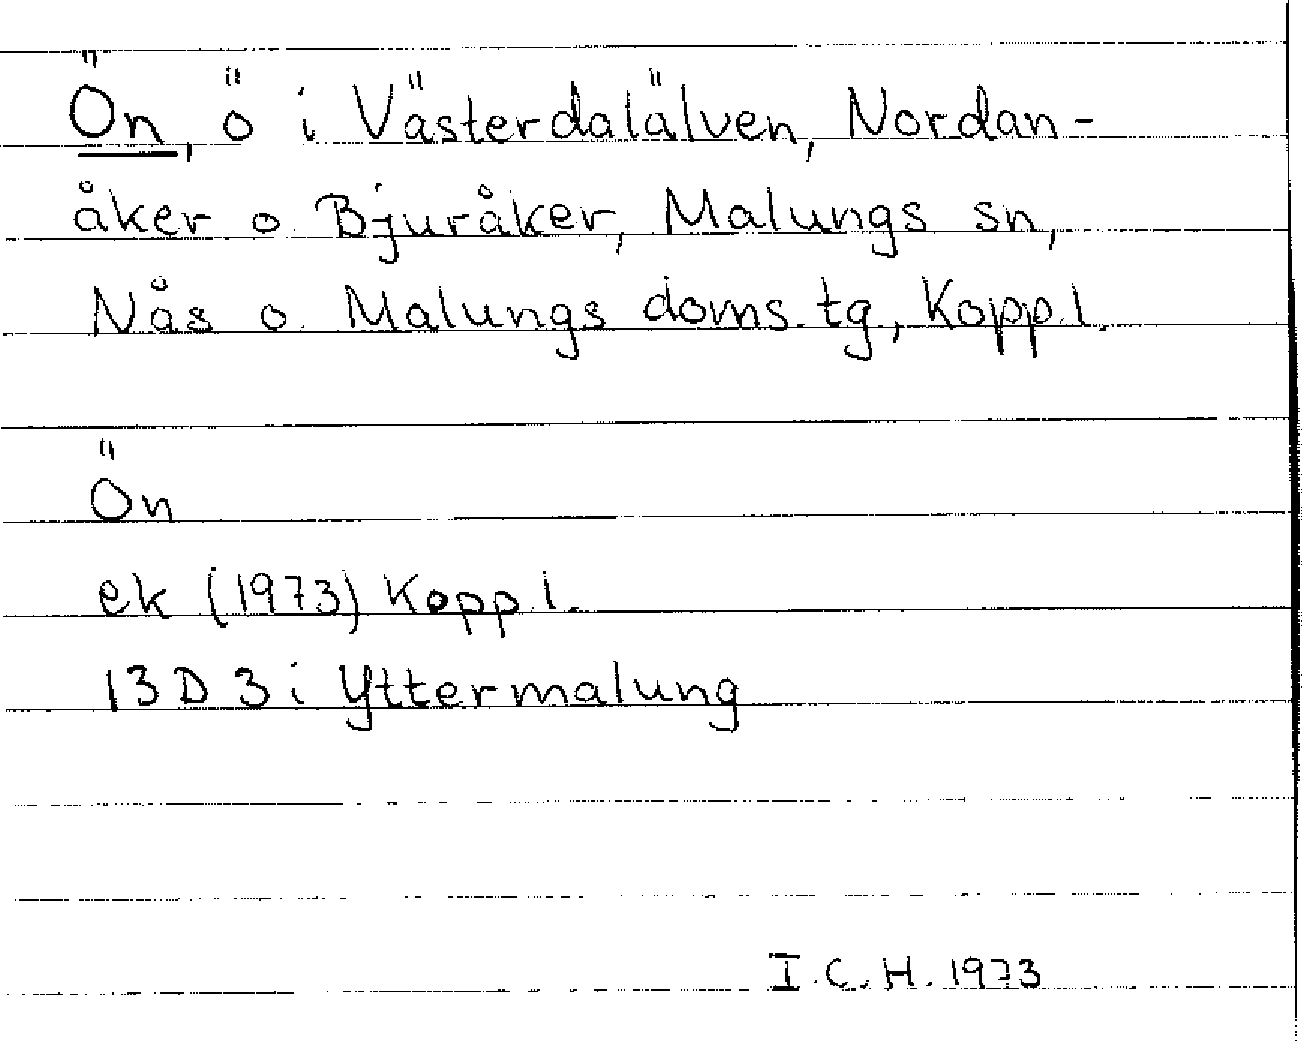 Ön, ö i Västerdalälven, Nordan-
åker o. Bjuråker, Malungs sn,
Nås o. Malungs doms.tg., Kopp.l.
Ön
ek (1973) Kopp.l.
13 D 3 i Yttermalung
I.C.H. 1973